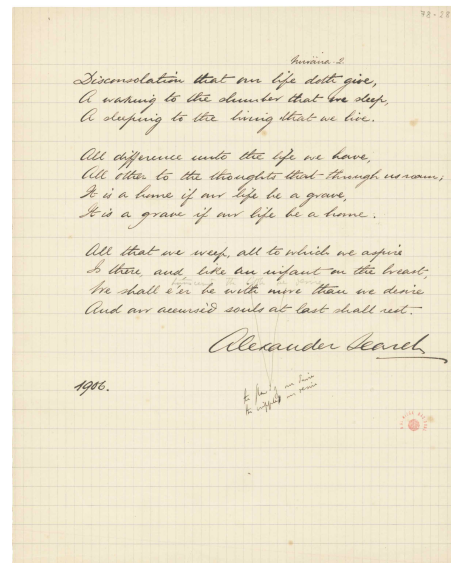 78-28
Nirvâna-2.
Disconsolation that our life doth give,
A waking to the slumber that we sleep,
A sleeping to the living that we live.
All difference unto the life we have,
All other to the thoughts that through us roam;
It is a home if our life be a grave,
It is a grave if our life be a home.
All that we weep, all to which we aspire
Is there, and like an infant on the breast,
We shall e'er be with more than we desire
And our accursèd souls at last shall rest.
Alexander Search
1906.